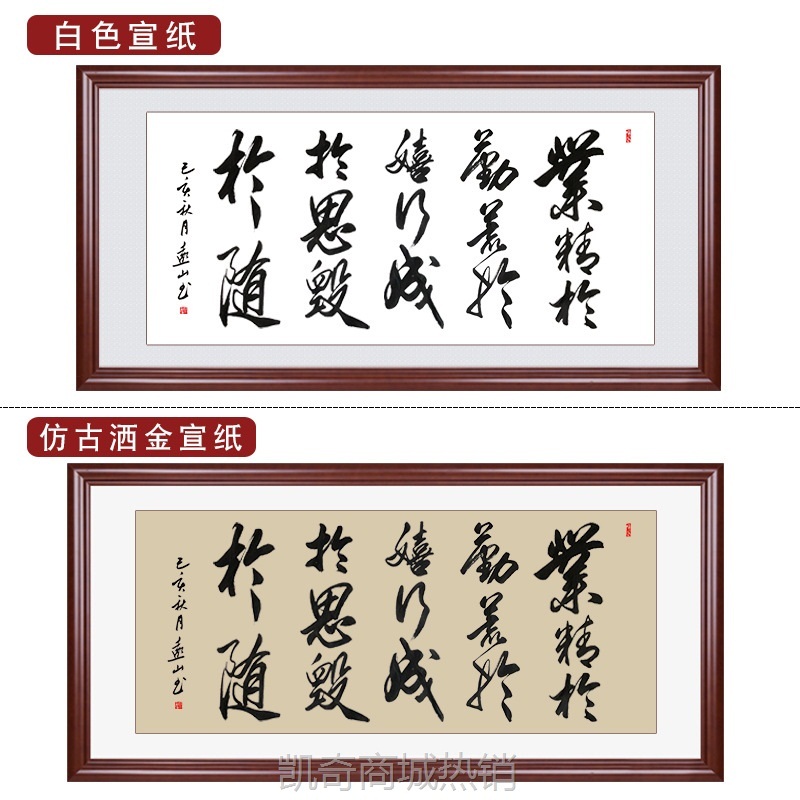 白色宣纸
業精於
勤荒於
嬉行成
於思毀
於随
己亥秋月遠山书
仿古洒金宣纸
業精於
勤荒於
嬉行成
於思毀
於随
己亥秋月遠山书
凯奇商城热销